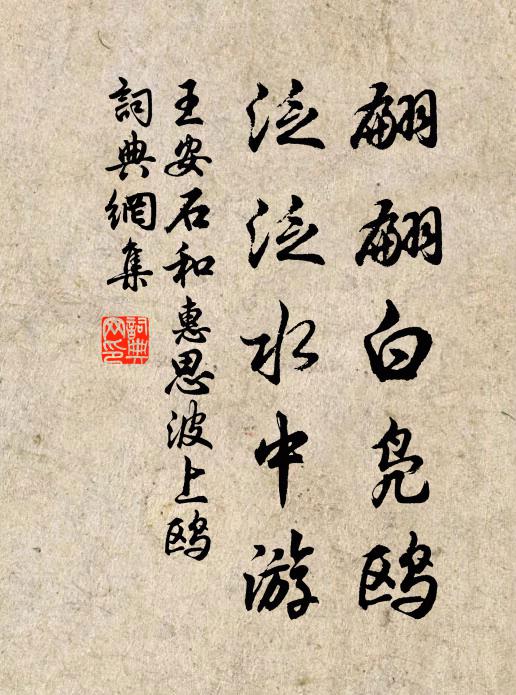 翩翩白凫鸥
泛泛水中游
王安石和惠思波上鸥
詞典網集
詞典網印